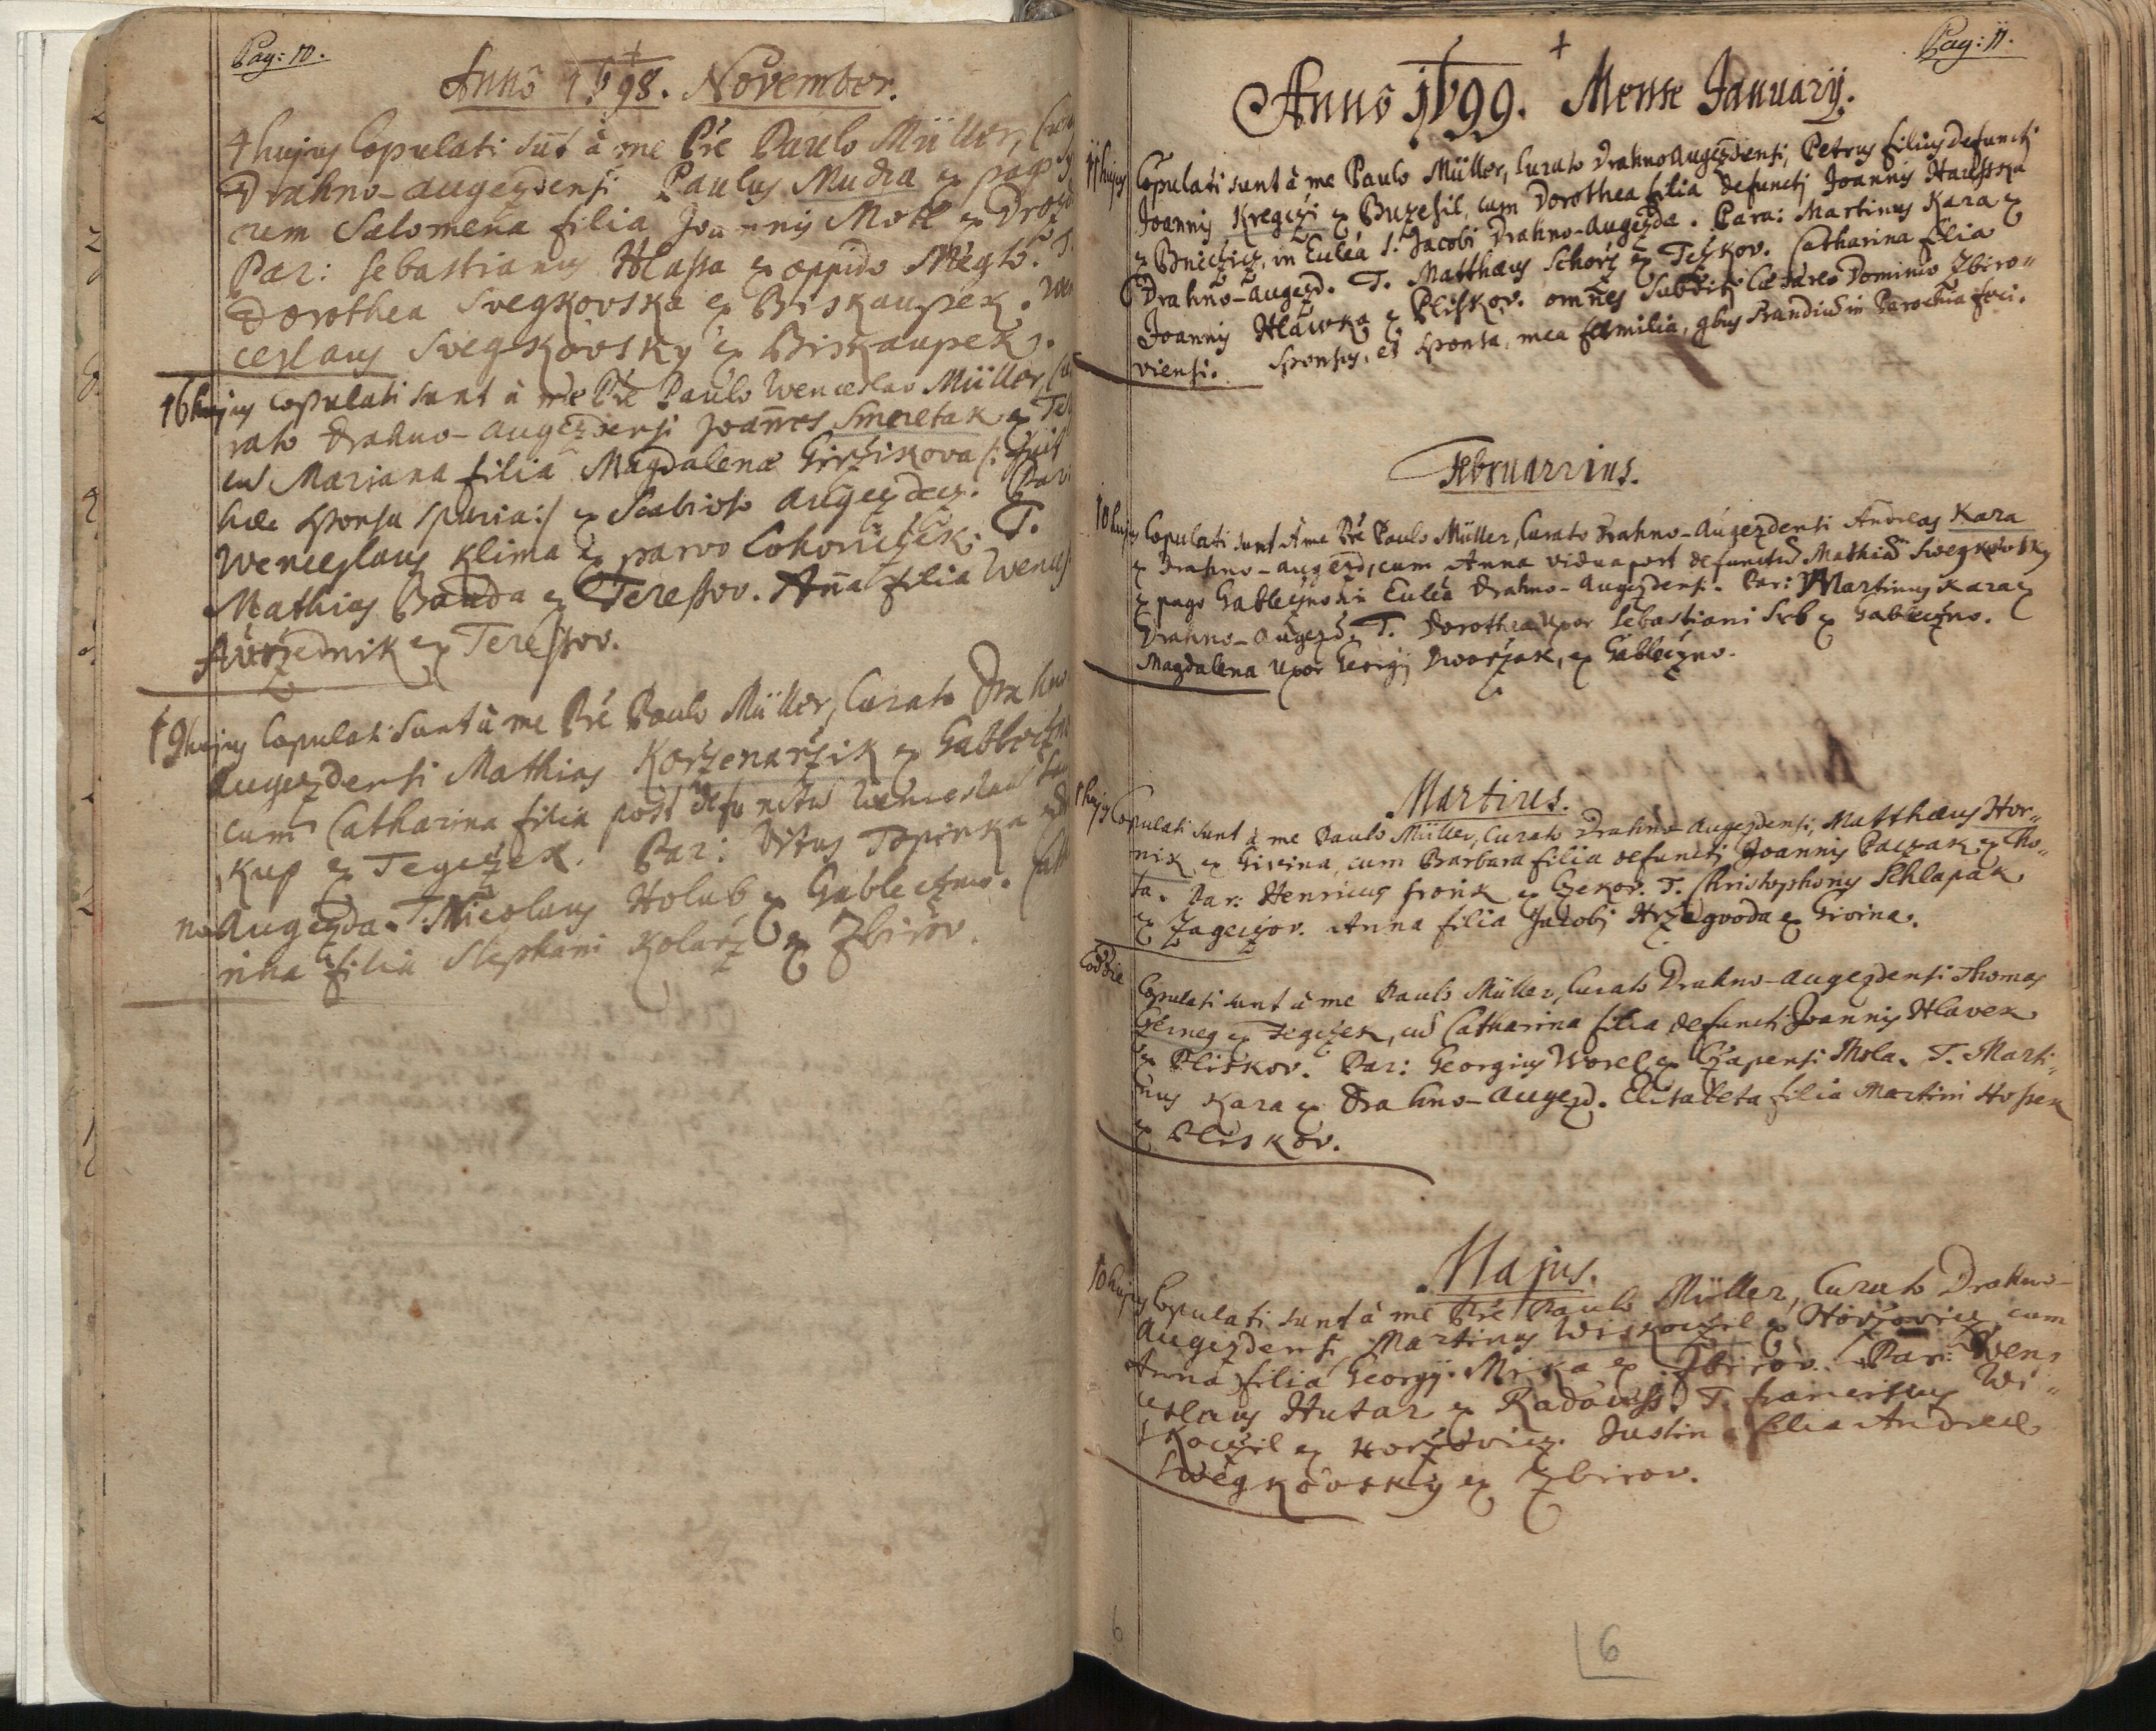 Pag: 10.
Anno 1698. November.
4 hujus Copulati sūt à me Pre Paulo Müller,
Drahno-augezdensi Paulus Mudra ex pago
cum Salomena filia Joannis Motl ex
Par: Sebastianus Hlassa ex oppido Megto. T.
Dorothea Svegkovska ex Biskaupek.
ceslaus Svegskovsky ex Biskaupek.
16 hujus copulati sunt à me Pre Paulo Wenceslao Müller,
rato Drahno-augezdensi Joañes Smeretak ex
cū Mariana filia Magdalenæ Girzikova /: fuit
hæc sponsa spuria :/ ex Scabioso augezdecz. Par:
Wenceslaus Klima ex parvo Lohoviczek. T.
Mathias Banda ex Teressov. Aña filia
Aurzednik ex Teressov.
19 hujus Copulati sunt à me Pre Paulo Müller, Curato Drahno
augezdensi Mathias Korzenarzik ex Gableczno
cum Catharina filia post defunctū Wenceslaū
kup ex Tegczek. Par: Vitus Topinka
no augezda. T. Nicolaus Holub ex Gableczno.
rina filia Stephani Kolarz ex Zbirov.
Pag: 11.
Anno 1699. Mense Januarij.
11 hujus Copulati sunt à me Paulo Müller, Curato Drahno Augezdensi, Petrus filius defuncti
Joannis Kregczi ex Buzesil, cum Dorothea filia defuncti Joannis Hausska
ex Bnieczicz, in Eulâ S. Jacobi Drahno-Augezda. Para: Martinus Kara ex
Drahno-augezd. T. Matthæus Schorz ex Teskov. Catharina filia
Joannis Hlawka ex Pliskov. omnes subditi Cæsareo Dominio Zbiro-
viensi. Sponsus, et sponsa, mea familia, qbus Prandiū in Parochia feci.
Februarrius.
10 hujus Copulati sunt à me Pre Paulo Müller, Curato Drahno-Augezdensi Andreas Kara
ex Drahno-augezd, cum Anna vidua post defunctū Mathiā Swegkovsky
ex pago Gableczno in Eulâ Drahno-Augezdensi. Par: Martinus Kara ex
Drahno-augezd. T. Dorothea Uxor Sebastiani Srb ex Gableczno.
Magdalena Uxor Georgij Dworzak, ex Gableczno.
Martius.
1 hujus Copulati sunt à me Paulo Müller, Curato Drahno Augezdensi, Matthæus Hor-
nik, ex Givina, cum Barbara filia defuncti Joannis Paczak ex Lho-
ta. Par: Henricus Fronk ex Czekov. T. Christophorus Schlapak
ex Zageczov. Anna filia Jacobi Hrzegvoda ex Givina.
Eod die Copulati sunt à me Paulo Müller, Curato Drahno-augezdensi Thomas
Czerneg ex Tegczek, cū Catharina filia defuncti Joannis Hlavek
ex Pliskov. Par: Georgius Worel ex Czapensi Mola. T. Marti-
nus Kara ex Drahno-augezd. Elisabeta filia Martini Hossek
ex Pliskov.
Majus.
10 hujus Copulati sunt à me Pre Paulo Müller, Curato Drahno-
Augezdensi, Martinus Wiskoczil ex Horzovicz, cum
Anna filia Georgij Mrzka ex Zbirov. Par: Wen-
ceslaus Hutar ex Radauss. T. Franciscus Wi-
skoczil ex Horzovicz. Justina filia Andreæ
Swegkovsky ex Zbirov.
6
6